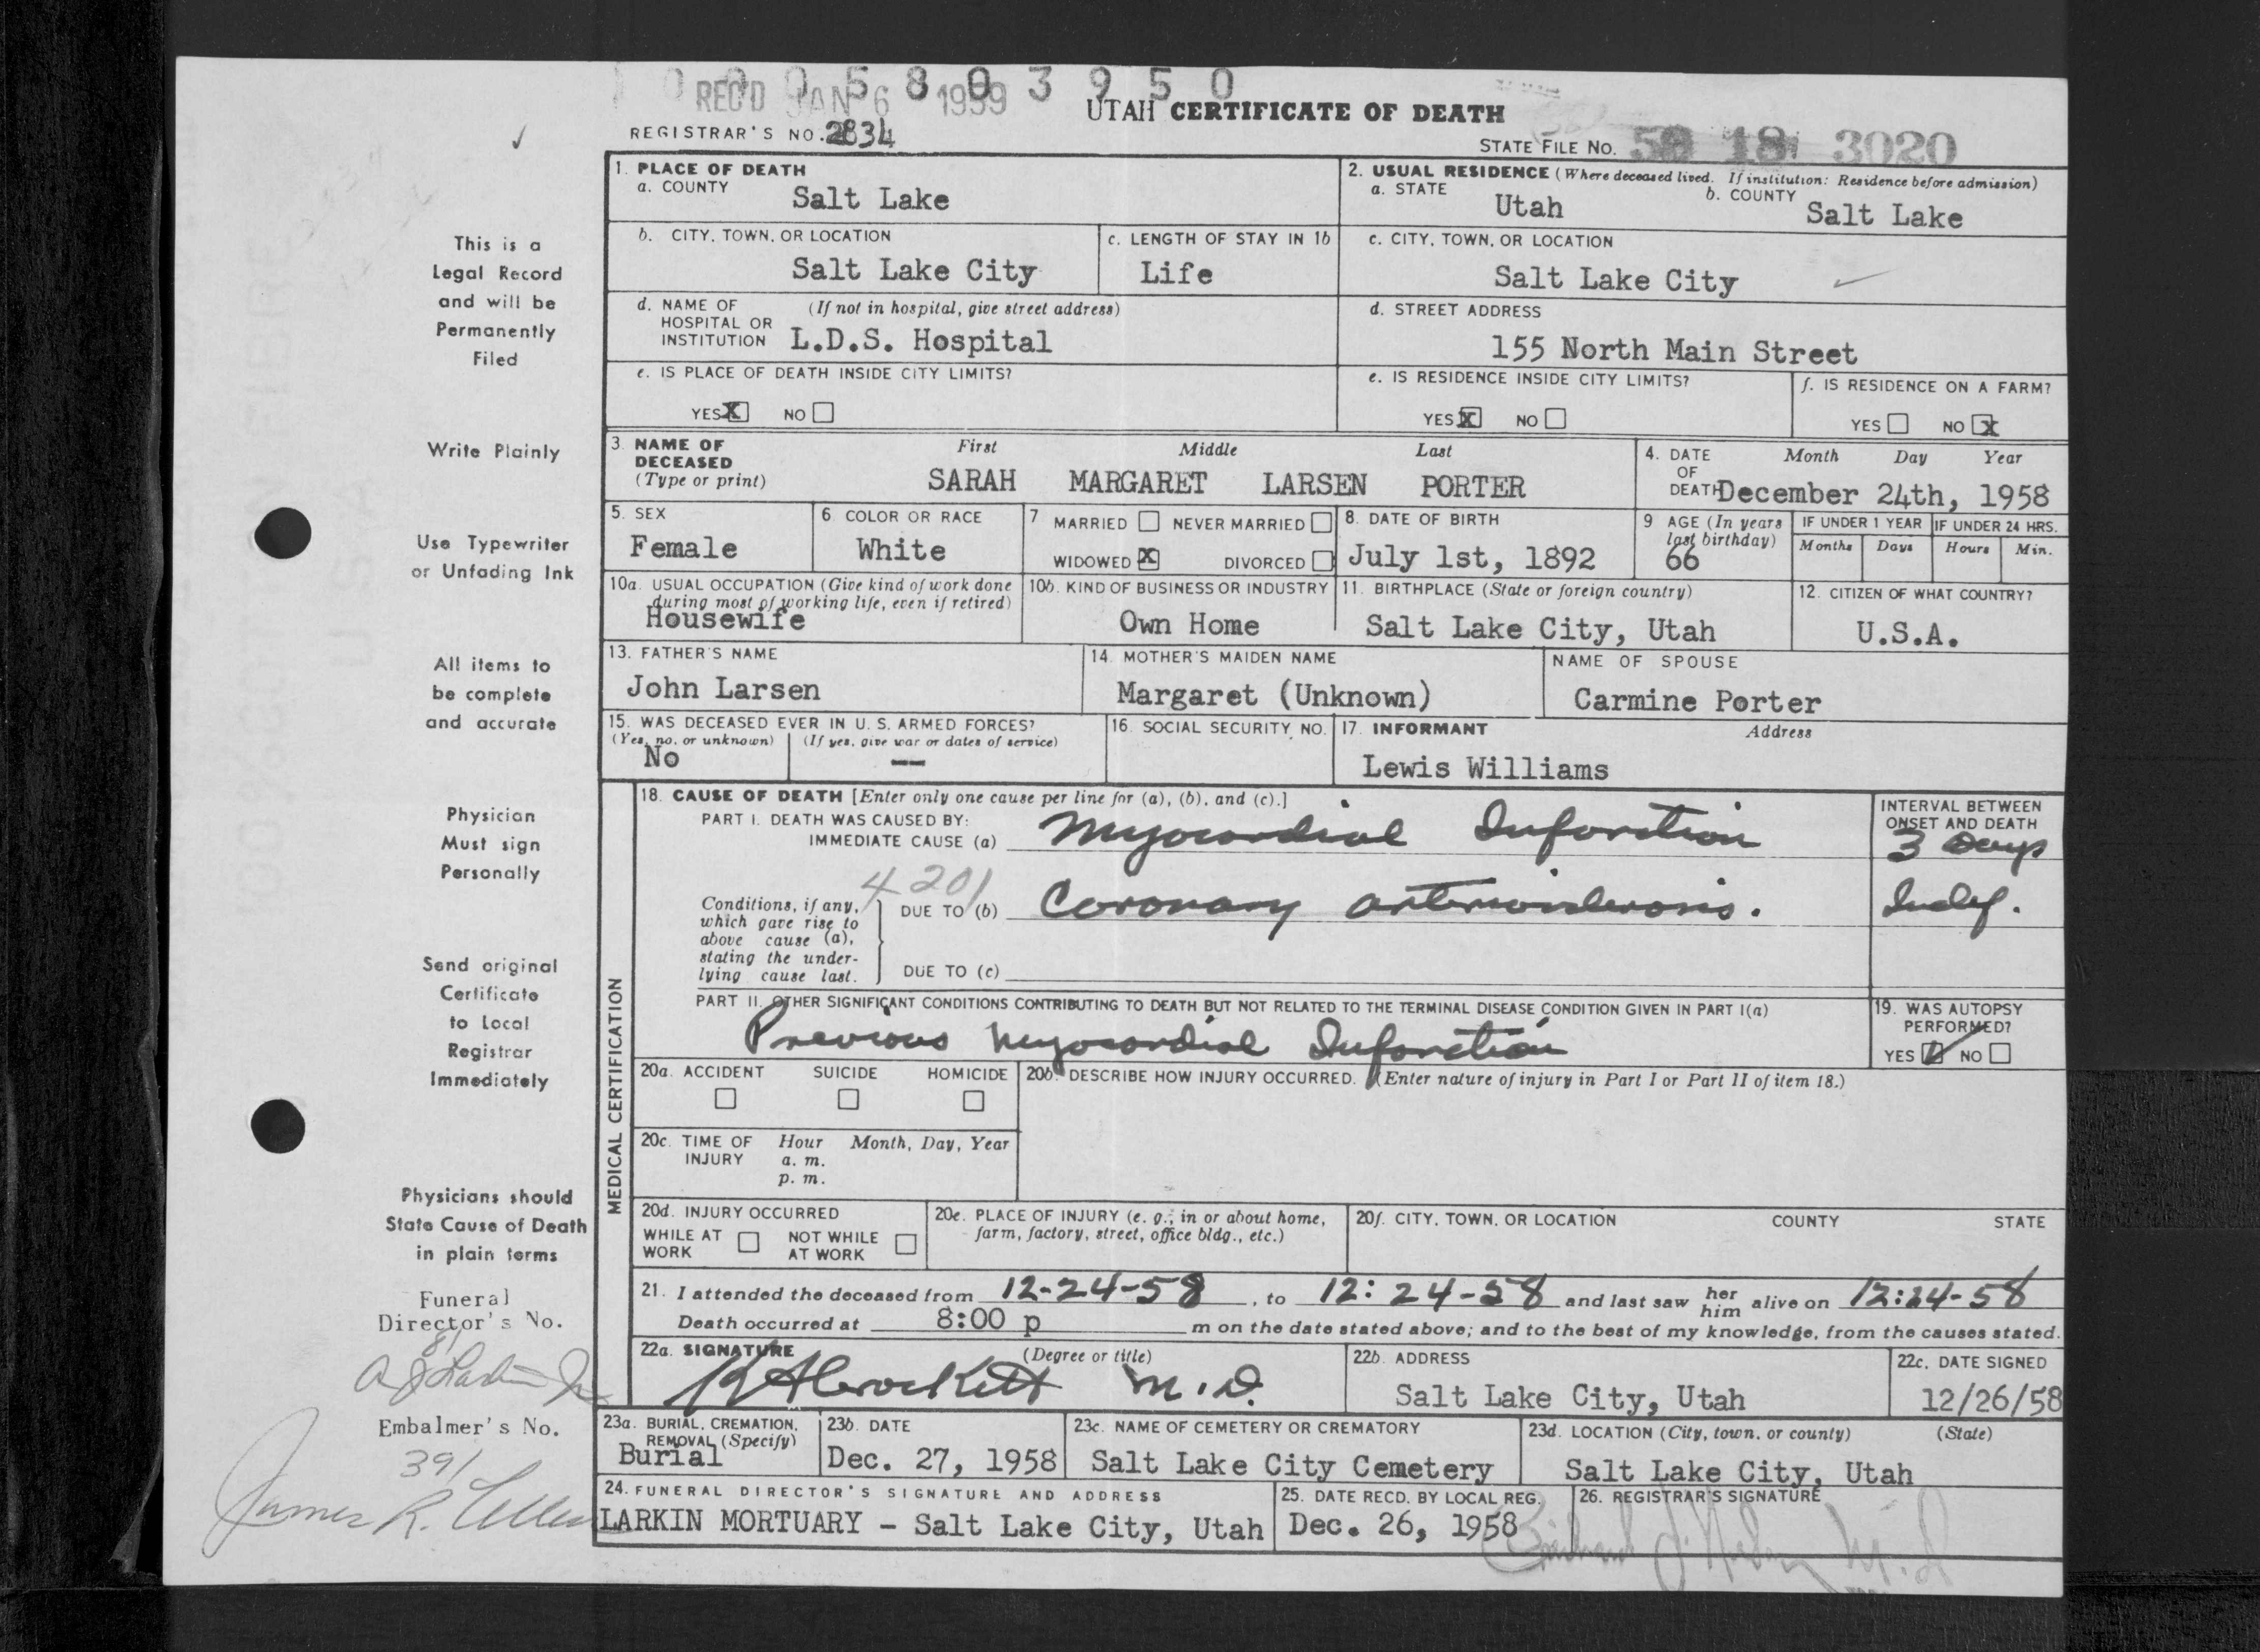 0 0 0 5 8 0 3 9 5 0
REC'D JAN 6 1959
UTAH CERTIFICATE OF DEATH
REGISTRAR'S NO. 2834
STATE FILE NO. 58 18 3020
1. PLACE OF DEATH
a. COUNTY Salt Lake
2. USUAL RESIDENCE (Where deceased lived. If institution: Residence before admission)
a. STATE Utah b. COUNTY Salt Lake
b. CITY, TOWN, OR LOCATION Salt Lake City
c. LENGTH OF STAY IN 1b Life
c. CITY, TOWN, OR LOCATION Salt Lake City
d. NAME OF HOSPITAL OR INSTITUTION (If not in hospital, give street address) L.D.S. Hospital
d. STREET ADDRESS 155 North Main Street
e. IS PLACE OF DEATH INSIDE CITY LIMITS?
YES X NO
e. IS RESIDENCE INSIDE CITY LIMITS?
YES X NO
f. IS RESIDENCE ON A FARM?
YES NO X
3. NAME OF DECEASED (Type or print)
First Middle Last
SARAH MARGARET LARSEN PORTER
4. DATE OF DEATH Month Day Year
December 24th, 1958
5. SEX Female
6 COLOR OR RACE White
7 MARRIED NEVER MARRIED
WIDOWED X DIVORCED
8. DATE OF BIRTH July 1st, 1892
9 AGE (In years last birthday) 66
IF UNDER 1 YEAR Months Days
IF UNDER 24 HRS. Hours Min.
10a. USUAL OCCUPATION (Give kind of work done during most of working life, even if retired) Housewife
10b. KIND OF BUSINESS OR INDUSTRY Own Home
11. BIRTHPLACE (State or foreign country) Salt Lake City, Utah
12. CITIZEN OF WHAT COUNTRY? U.S.A.
13. FATHER'S NAME John Larsen
14. MOTHER'S MAIDEN NAME Margaret (Unknown)
NAME OF SPOUSE Carmine Porter
15. WAS DECEASED EVER IN U. S. ARMED FORCES?
(Yes, no, or unknown) No (If yes, give war or dates of service) --
16. SOCIAL SECURITY NO.
17. INFORMANT Address
Lewis Williams
MEDICAL CERTIFICATION
18. CAUSE OF DEATH [Enter only one cause per line for (a), (b), and (c).]
PART I. DEATH WAS CAUSED BY:
IMMEDIATE CAUSE (a) Myocardial Infarction
INTERVAL BETWEEN ONSET AND DEATH
3 Days
4201
Conditions, if any, which gave rise to above cause (a), stating the underlying cause last.
DUE TO (b) Coronary arteriosclerosis.
Indef.
DUE TO (c)
PART II. OTHER SIGNIFICANT CONDITIONS CONTRIBUTING TO DEATH BUT NOT RELATED TO THE TERMINAL DISEASE CONDITION GIVEN IN PART I(a)
Previous Myocardial Infarction
19. WAS AUTOPSY PERFORMED?
YES NO
20a. ACCIDENT SUICIDE HOMICIDE
20b. DESCRIBE HOW INJURY OCCURRED. (Enter nature of injury in Part I or Part II of item 18.)
20c. TIME OF INJURY Hour Month, Day, Year
a. m.
p. m.
20d. INJURY OCCURRED
WHILE AT WORK NOT WHILE AT WORK
20e. PLACE OF INJURY (e. g., in or about home, farm, factory, street, office bldg., etc.)
20f. CITY, TOWN, OR LOCATION COUNTY STATE
21. I attended the deceased from 12-24-58, to 12:24-58 and last saw her him alive on 12:24-58
Death occurred at 8:00 p m on the date stated above; and to the best of my knowledge, from the causes stated.
22a. SIGNATURE (Degree or title)
M.D.
22b. ADDRESS Salt Lake City, Utah
22c. DATE SIGNED 12/26/58
23a. BURIAL, CREMATION, REMOVAL (Specify) Burial
23b. DATE Dec. 27, 1958
23c. NAME OF CEMETERY OR CREMATORY Salt Lake City Cemetery
23d. LOCATION (City, town, or county) (State)
Salt Lake City, Utah
24. FUNERAL DIRECTOR'S SIGNATURE AND ADDRESS
LARKIN MORTUARY - Salt Lake City, Utah
25. DATE RECD. BY LOCAL REG. Dec. 26, 1958
26. REGISTRAR'S SIGNATURE
This is a
Legal Record
and will be
Permanently
Filed
Write Plainly
Use Typewriter
or Unfading Ink
All items to
be complete
and accurate
Physician
Must sign
Personally
Send original
Certificate
to Local
Registrar
Immediately
Physicians should
State Cause of Death
in plain terms
Funeral
Director's No.
81
Embalmer's No.
391
James R.